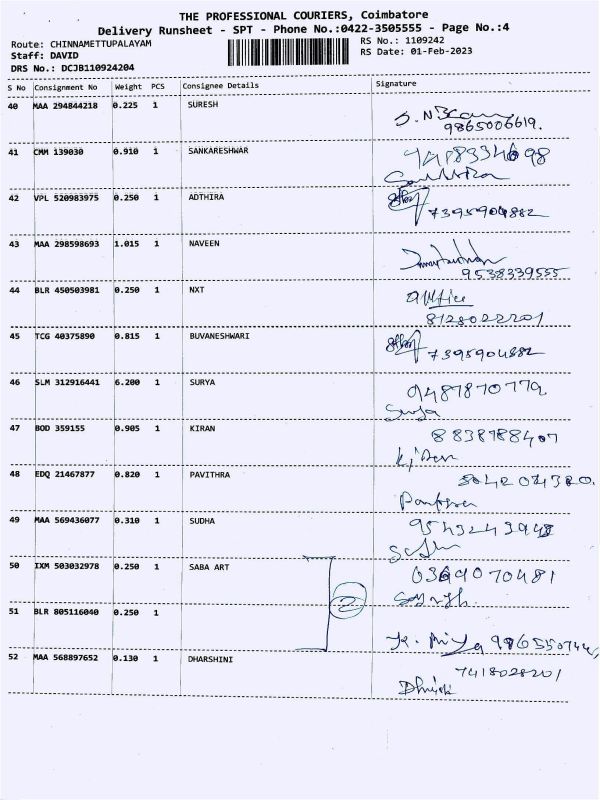 THE PROFESSIONAL COURIERS, Coimbatore
Delivery Runsheet - SPT - Phone No.:0422-3505555 - Page No.:4
Route: CHINNAMETTUPALAYAM RS No.: 1109242
Staff: DAVID RS Date: 01-Feb-2023
DRS No.: DCJB110924204
S No Consignment No Weight PCS Consignee Details Signature
40 MAA 294844218 0.225 1 SURESH
9865006619.
41 CMM 139030 0.910 1 SANKARESHWAR
42 VPL 520983975 0.250 1 ADTHIRA
7395904882
43 MAA 298598693 1.015 1 NAVEEN
9538339555
44 BLR 450503981 0.250 1 NXT
8128022201
45 TCG 40375890 0.815 1 BUVANESHWARI
7395904882
46 SLM 312916441 6.200 1 SURYA
9487870772
Surya
47 BOD 359155 0.905 1 KIRAN
8838988407
48 EDQ 21467877 0.820 1 PAVITHRA
49 MAA 569436077 0.310 1 SUDHA
9543243948
50 IXM 503032978 0.250 1 SABA ART
0369070481
2
51 BLR 805116040 0.250 1
52 MAA 568897652 0.130 1 DHARSHINI
7418028201